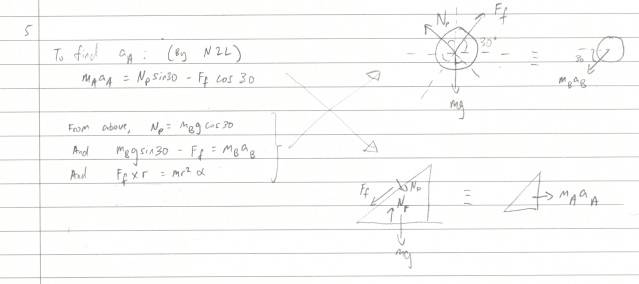 5
To find aA : (By N2L)
mAaA = Np sin30 - Ff cos 30
From above, Np = mBg cos30
And mBg sin30 - Ff = mBaB
And Ff x r = mr² α
Np
Ff
30°
mg
≡
30
mBaB
Ff
Np
NF
mg
≡
mAaA